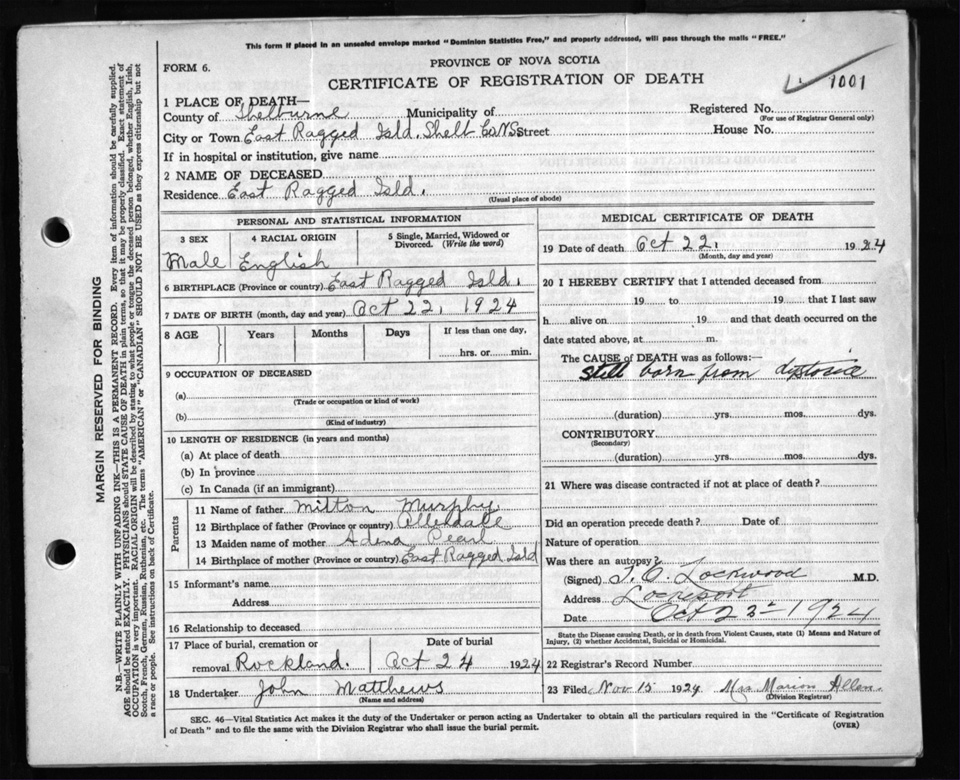 This form if placed in an unsealed envelope marked "Dominion Statistics Free," and property addressed, will pass through the mails "FREE."
PROVINCE OF NOVA SCOTIA
FORM 6.
CERTIFICATE OF REGISTRATION OF DEATH
1001
1 PLACE OF DEATH—
County of Shelburne Municipality of Registered No.
(For use of Registrar General only)
City or Town East Ragged Isld, Shelb Co NS Street House No.
If in hospital or institution, give name
2 NAME OF DECEASED
Residence East Ragged Isld.
(Usual place of abode)
PERSONAL AND STATISTICAL INFORMATION
3 SEX 4 RACIAL ORIGIN 5 Single, Married, Widowed or Divorced. (Write the word)
Male English
6 BIRTHPLACE (Province or country) East Ragged Isld.
7 DATE OF BIRTH (month, day and year) Oct 22, 1924
8 AGE Years Months Days If less than one day,
hrs. or min.
9 OCCUPATION OF DECEASED
(a)
(Trade or occupation or kind of work)
(b)
(Kind of industry)
10 LENGTH OF RESIDENCE (in years and months)
(a) At place of death
(b) In province
(c) In Canada (if an immigrant)
Parents
11 Name of father Milton Murphy
12 Birthplace of father (Province or country) Allendale
13 Maiden name of mother Adena Pearl
14 Birthplace of mother (Province or country) East Ragged Isld
15 Informant's name
Address
16 Relationship to deceased
17 Place of burial, cremation or Date of burial
removal Rockland. Oct 24 1924
18 Undertaker John Matthews
(Name and address)
MEDICAL CERTIFICATE OF DEATH
19 Date of death Oct 22, 1924
(Month, day and year)
20 I HEREBY CERTIFY that I attended deceased from
19 to 19 that I last saw
h alive on 19 and that death occurred on the
date stated above, at m.
The CAUSE of DEATH was as follows:—
Still born from dystocia
(duration) yrs. mos. dys.
CONTRIBUTORY
(Secondary)
(duration) yrs. mos. dys.
21 Where was disease contracted if not at place of death?
Did an operation precede death? Date of
Nature of operation
Was there an autopsy?
(Signed) T. O. Lockwood M.D.
Address Lockeport
Date Oct 23 1924
State the Disease causing Death, or in death from Violent Causes, state (1) Means and Nature of
Injury, (2) whether Accidental, Suicidal or Homicidal.
22 Registrar's Record Number
23 Filed Nov 15 1924 Mrs Marion Allen.
(Division Registrar)
SEC. 46—Vital Statistics Act makes it the duty of the Undertaker or person acting as Undertaker to obtain all the particulars required in the "Certificate of Registration
of Death" and to file the same with the Division Registrar who shall issue the burial permit.
(OVER)
MARGIN RESERVED FOR BINDING
N.B.—WRITE PLAINLY WITH UNFADING INK—THIS IS A PERMANENT RECORD. Every item of information should be carefully supplied.
AGE should be stated EXACTLY. PHYSICIANS should STATE CAUSE OF DEATH in plain terms, so that it may be properly classified. Exact statement of
OCCUPATION is very important. RACIAL ORIGIN will be described by stating to what people or tongue the deceased person belonged, whether English, Irish,
Scotch, French, German, Russian, Ruthenian, etc. The terms "AMERICAN" or "CANADIAN" SHOULD NOT BE USED as they express citizenship but not
a race or people. See instructions on back of Certificate.